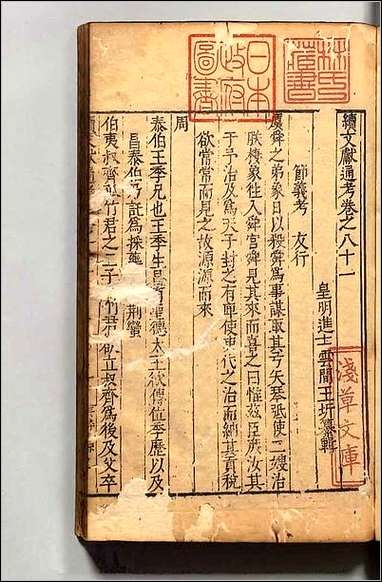 續文獻通考卷之八十一
皇明進士雲間王圻纂輯
節義考 友行
虞舜之弟象日以殺舜為事謀取其干戈琴弤使二嫂治
朕棲象往入舜宮舜見其來而喜之曰惟茲臣庶汝其
于予治及為天子封之有庳使吏代之治而納其貢稅
欲常常而見之故源源而來
周
泰伯王季兄也王季生昌有聖德太王欲傳位季歷以及
昌泰伯乃託為採藥 荊蠻
伯夷叔齊孤竹君之二子 竹君欲立叔齊為後及父卒
林氏藏書
日本政府圖書
淺草文庫